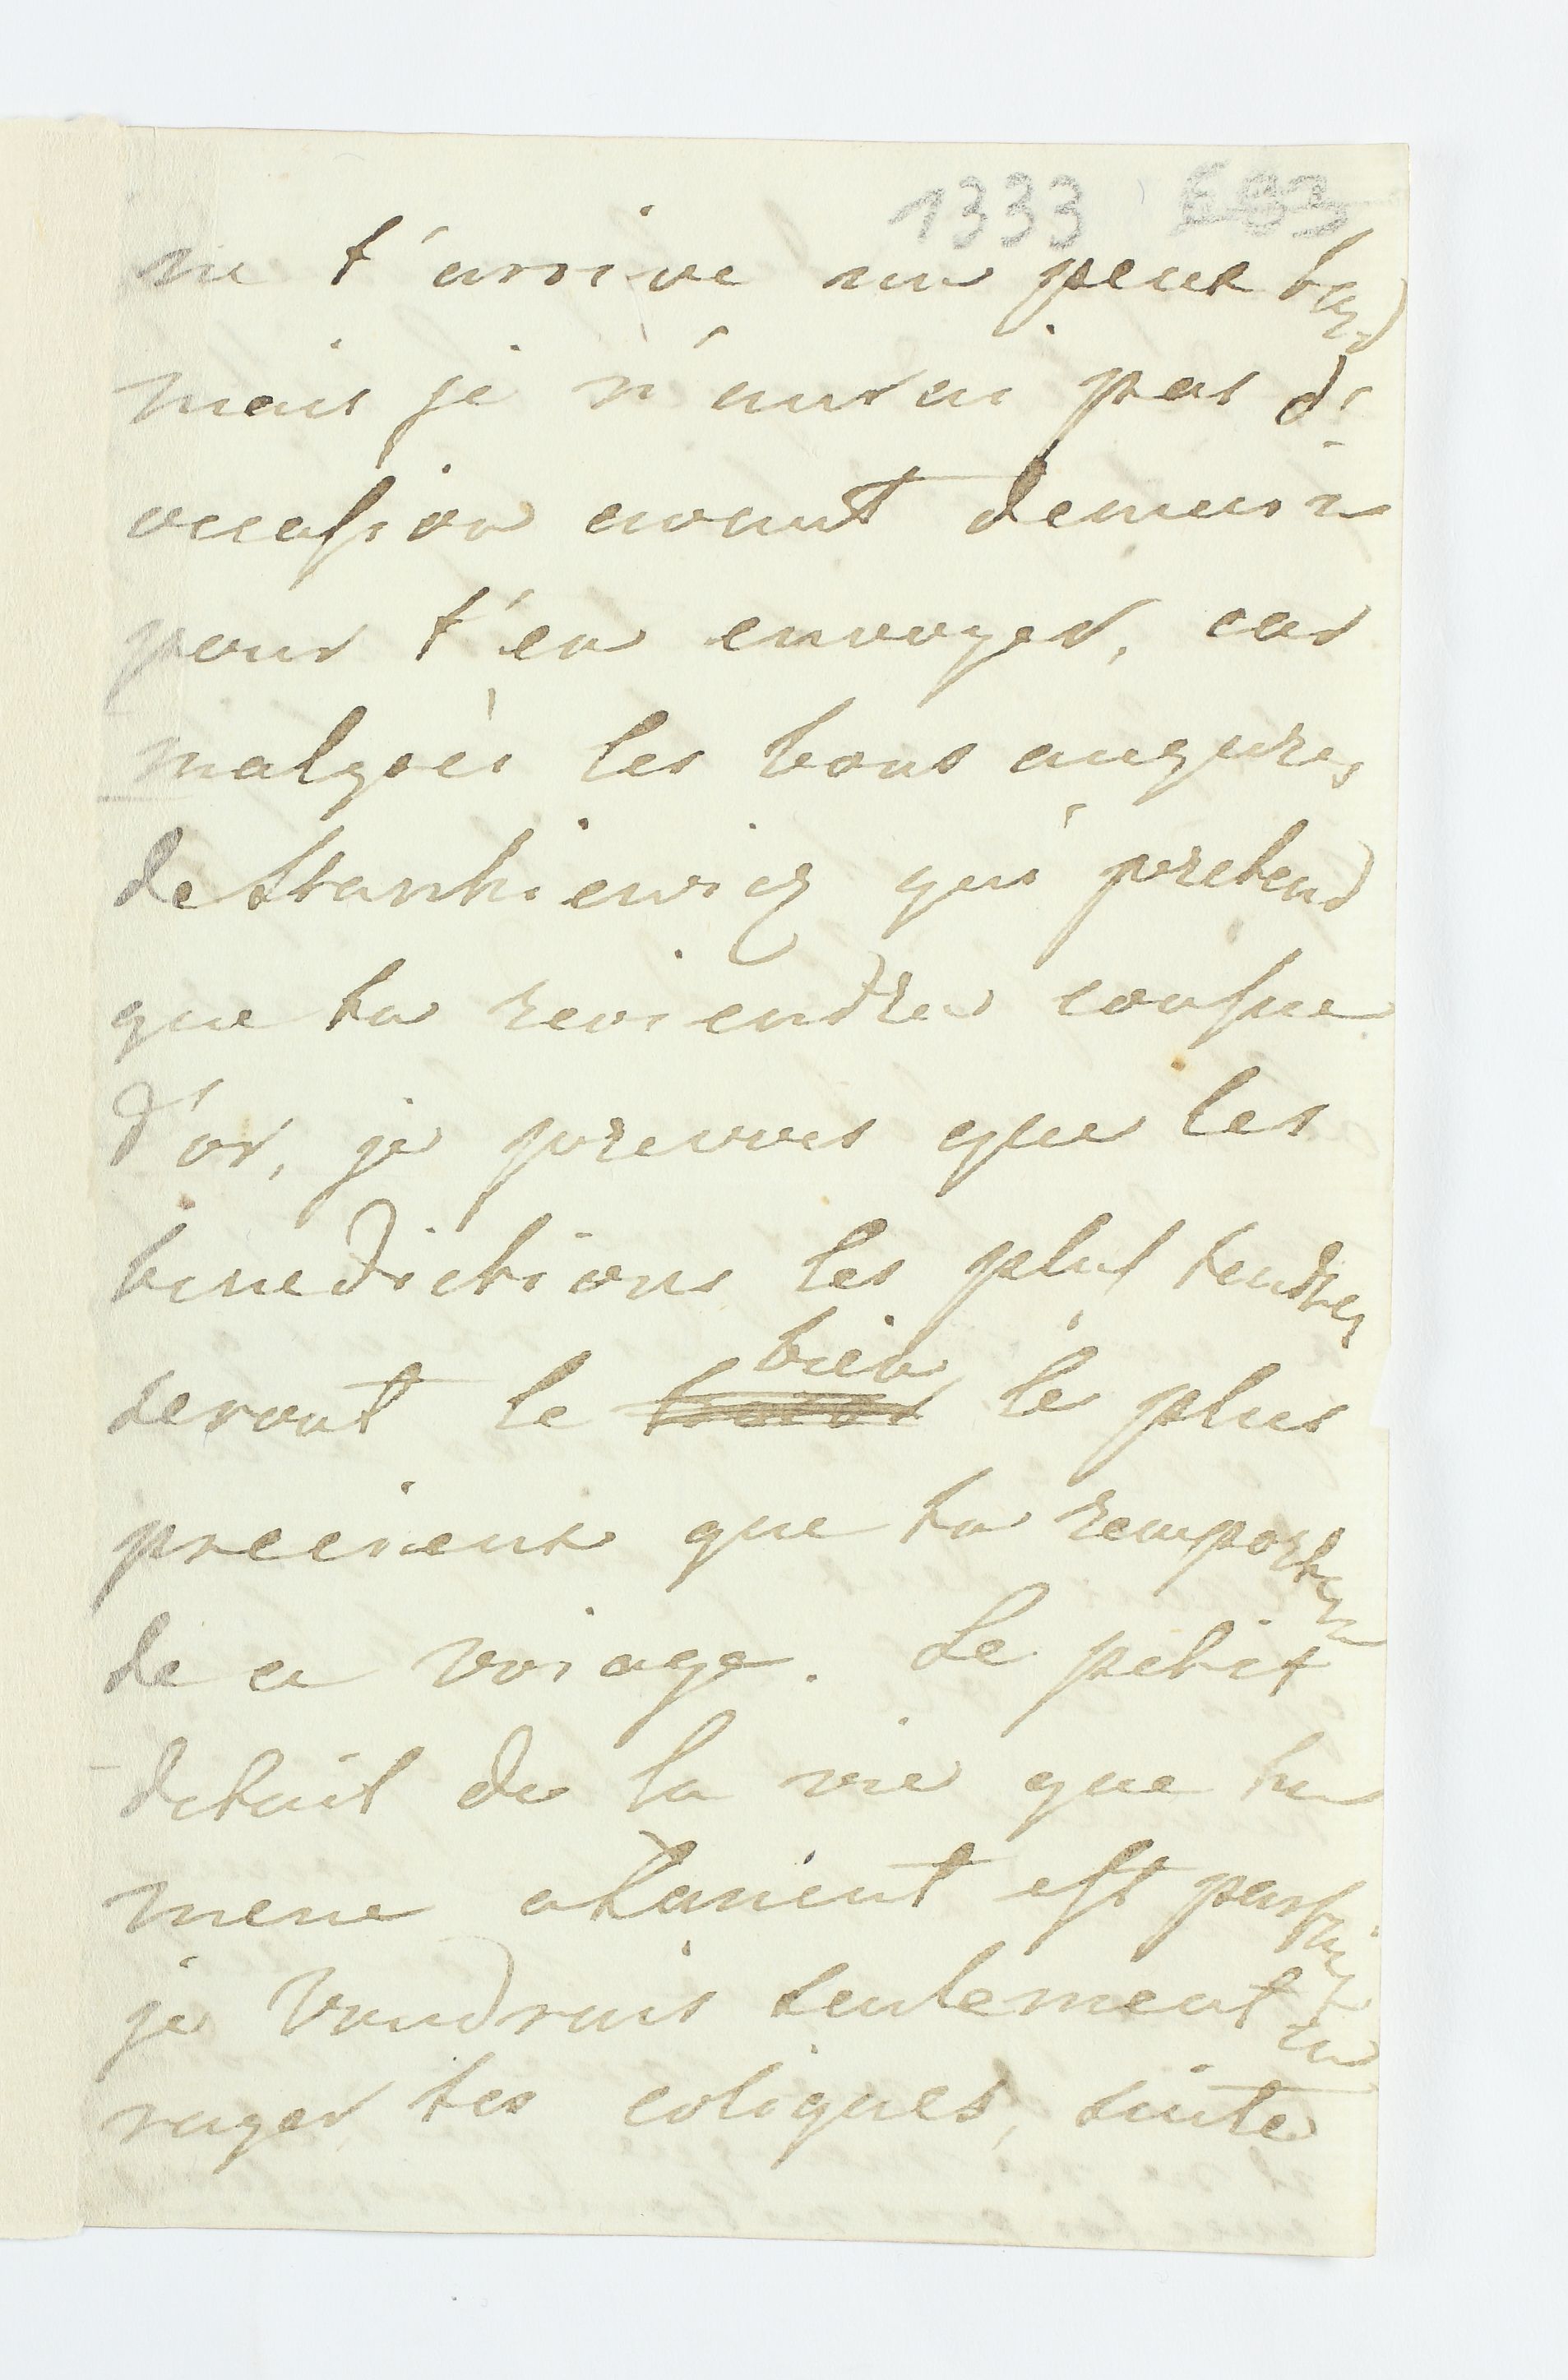 1333 603
ne t'arrive un peux tard
mais je n'aurai pas d'
occasion avant demain
pour t'en envoyer, car
malgrès les bons augures
de Stankiewicz qui pretend
que tu reviendras cousue
d'or, je prevois que les
benedictions les plus tendres
seront le bien le plus
precieux que tu remportera
de ce voiage. Le petit
detail de la vie que tu
mene
est parfait
je voudrais seulement en
rayer tes coliques, suite